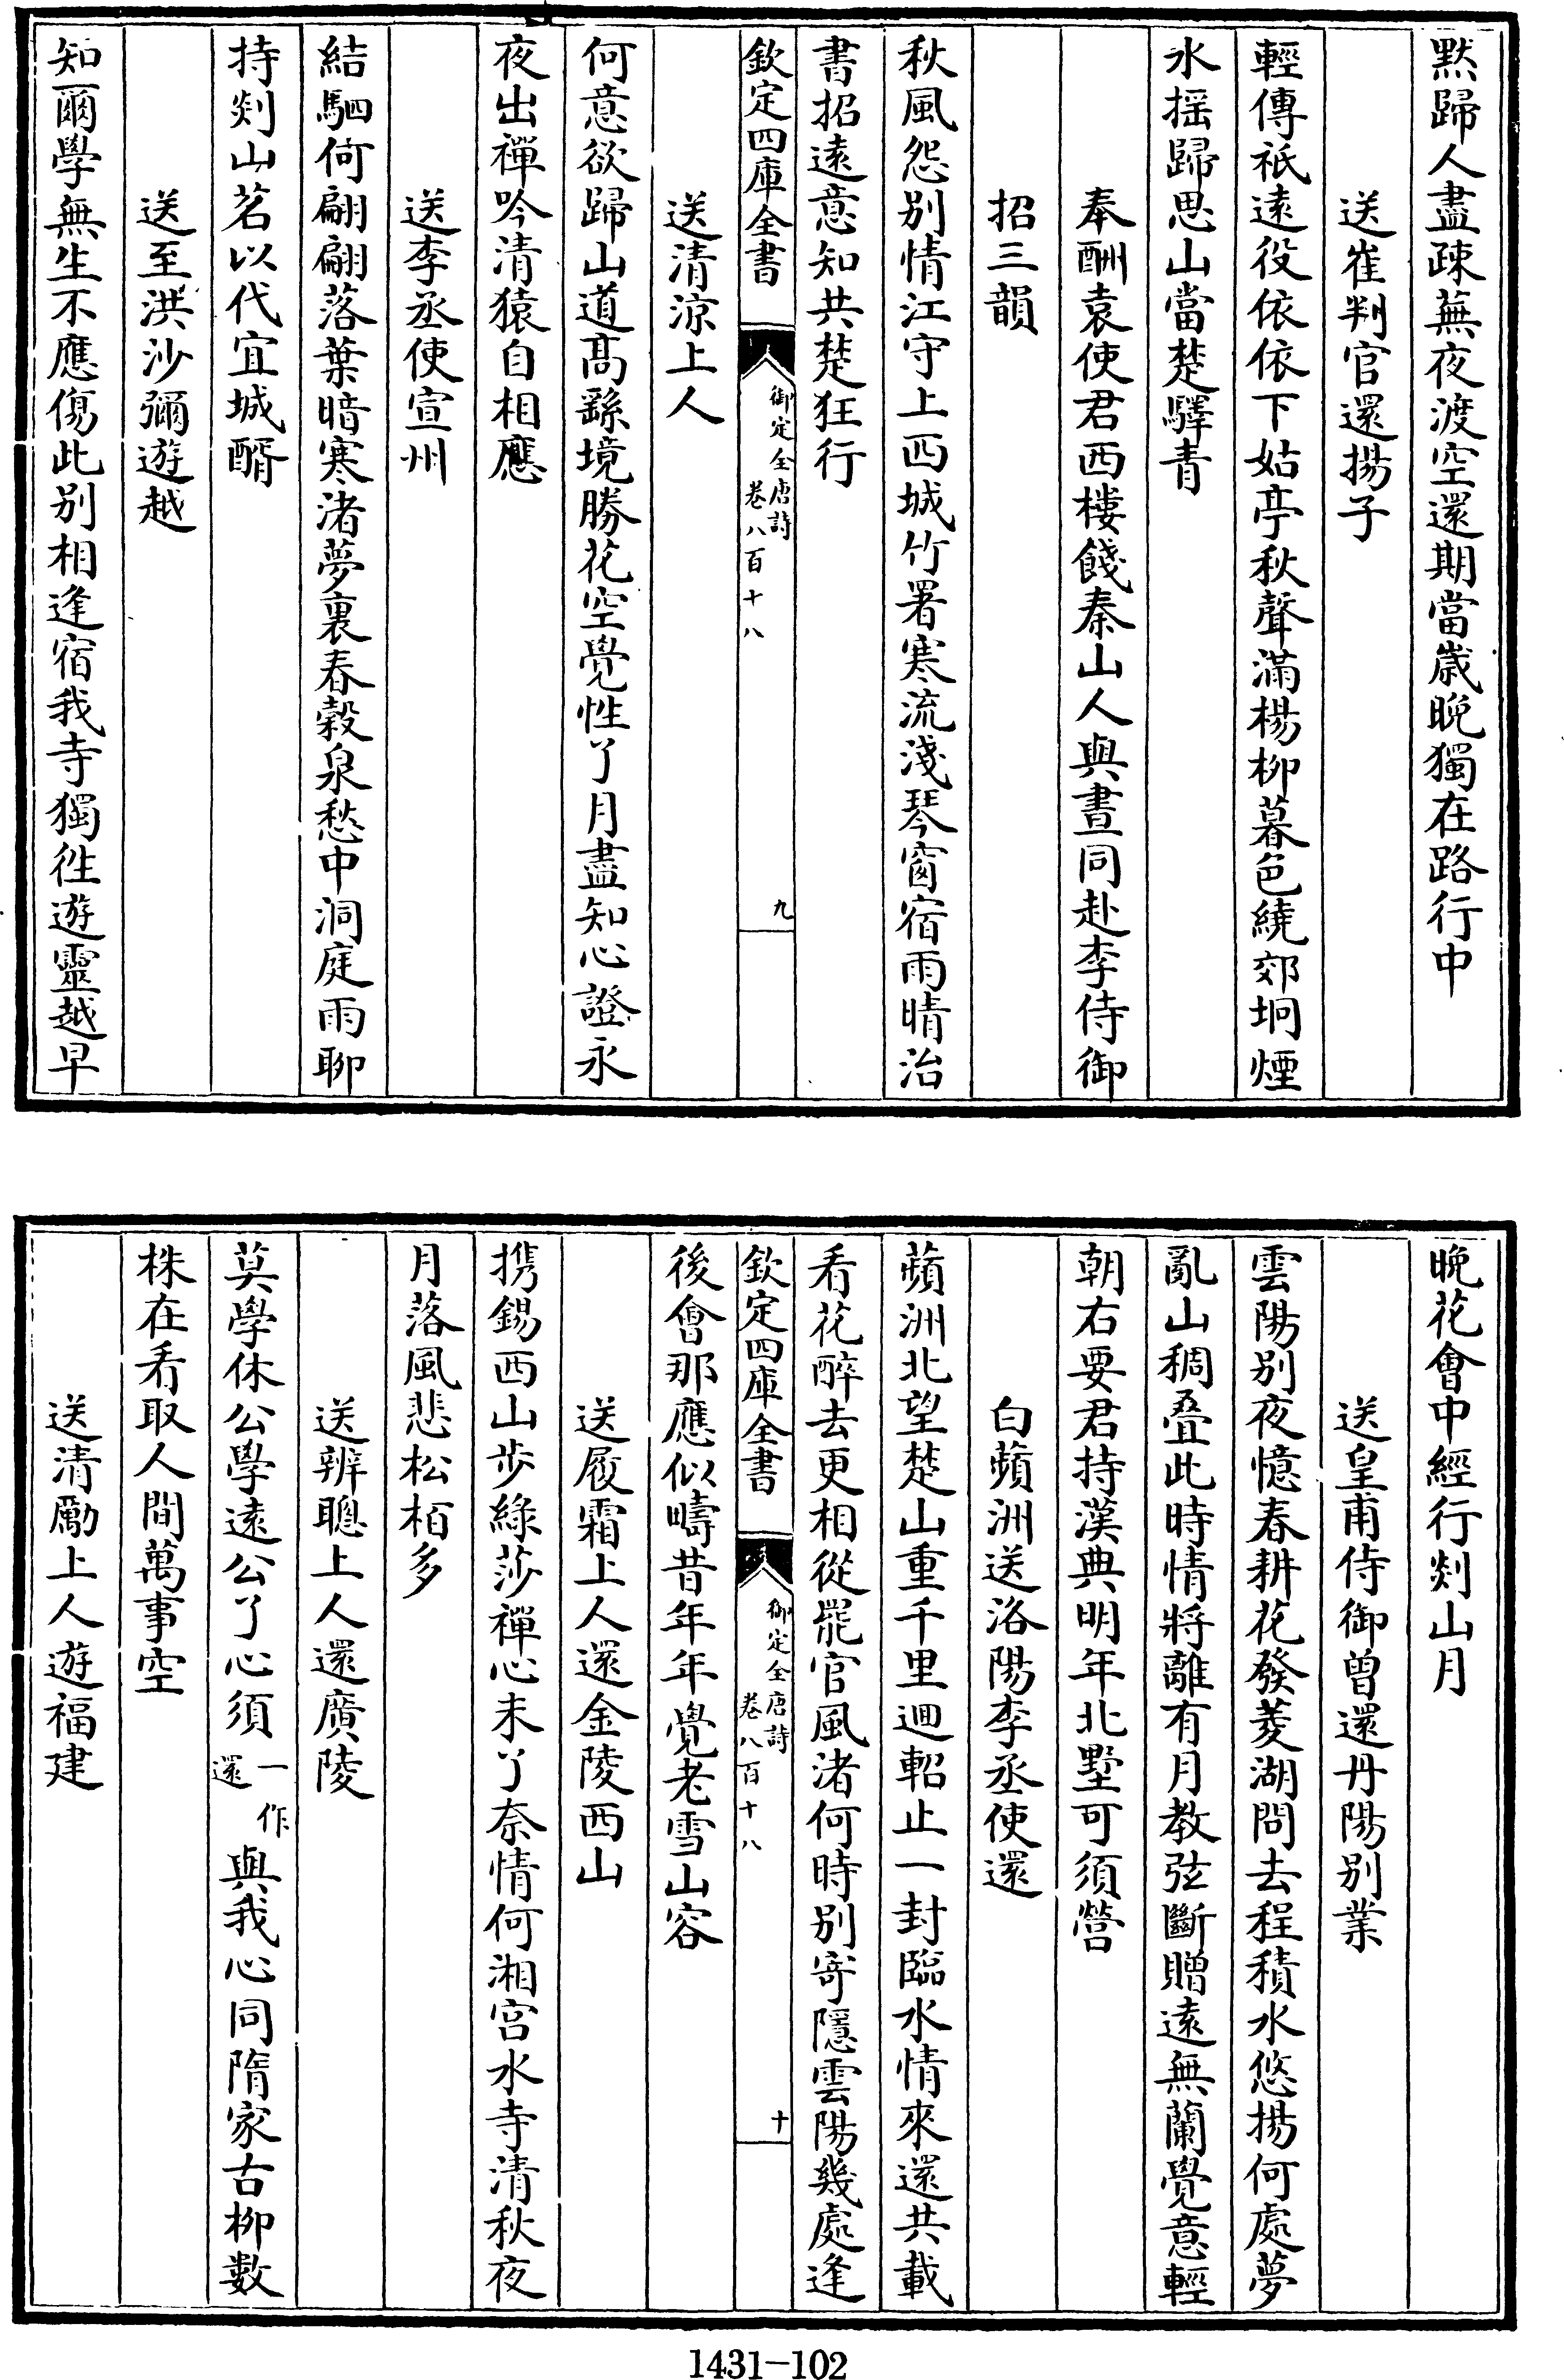 黙歸人盡疎蕪夜渡空還期當嵗晚獨在路行中
送崔判官還揚子
輕傳祗遠役依依下姑亭秋聲滿楊柳暮色繞郊坰煙
水揺歸思山當楚驛青
奉酬袁使君西樓餞秦山人與晝同赴李侍御
招三韻
秋風怨别情江守上西城竹署寒流淺琴窗宿雨晴治
書招遠意知共楚狂行
欽定四庫全書
御定全唐詩
卷八百十八
九
送清涼上人
何意欲歸山道髙繇境勝花空覺性了月盡知心證永
夜出禪吟清猿自相應
送李丞使宣州
結駟何翩翩落葉暗寒渚夢裏春榖泉愁中洞庭雨聊
持剡山茗以代宜城醑
送至洪沙彌遊越
知爾學無生不應傷此别相逢宿我寺獨徃遊靈越早
晚花會中經行剡山月
送皇甫侍御曽還丹陽别業
雲陽别夜憶春耕花發菱湖問去程積水悠揚何處夢
亂山稠叠此時情將離有月教弦斷贈遠無蘭覺意輕
朝右要君持漢典明年北墅可須營
白蘋洲送洛陽李丞使還
蘋洲北望楚山重千里廻軺止一封臨水情來還共載
看花醉去更相從罷官風渚何時别寄隱雲陽幾處逢
欽定四庫全書
御定全唐詩
卷八百十八
十
後會那應似疇昔年年覺老雪山容
送履霜上人還金陵西山
携錫西山步綠莎禪心未了奈情何湘宫水寺清秋夜
月落風悲松栢多
送辨聰上人還廣陵
莫學休公學遠公了心須一作還與我心同隋家古柳數
株在看取人間萬事空
送清勵上人遊福建
1431-102